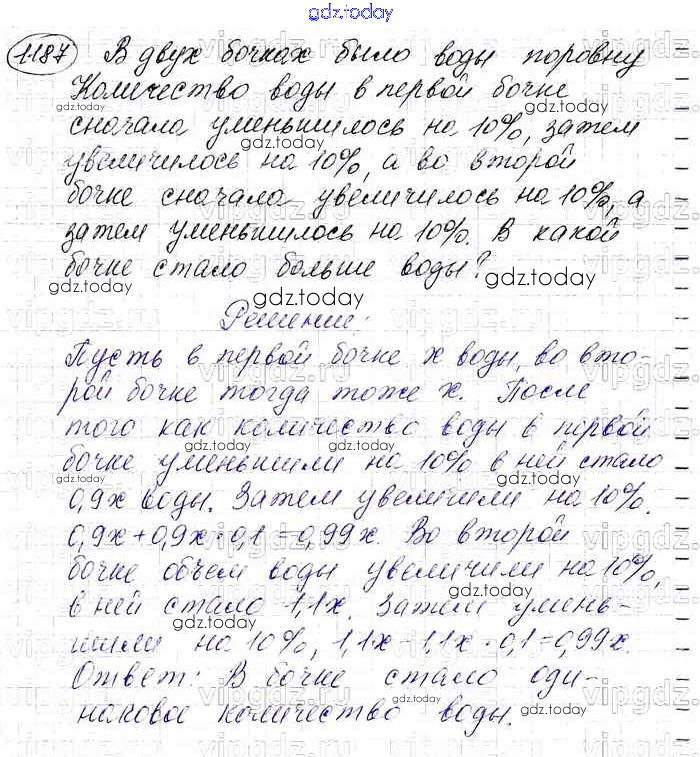 gdz.today
1187 В двух бочках было воды поровну
Количество воды в первой бочке
сначала уменьшилось на 10%, затем
увеличилось на 10%, а во второй
бочке сначала увеличилось на 10%, а
затем уменьшилось на 10%. В какой
бочке стало больше воды?
Решение:
Пусть в первой бочке x воды, во вто-
рой бочке тогда тоже x. После
того как количество воды в первой
бочке уменьшили на 10% в ней стало
0,9x воды. Затем увеличили на 10%.
0,9x+0,9x·0,1=0,99x. Во второй
бочке объем воды увеличили на 10%,
в ней стало 1,1x. Затем умень-
шили на 10%, 1,1x-1,1x·0,1=0,99x.
Ответ: В бочке стало оди-
наковое количество воды.